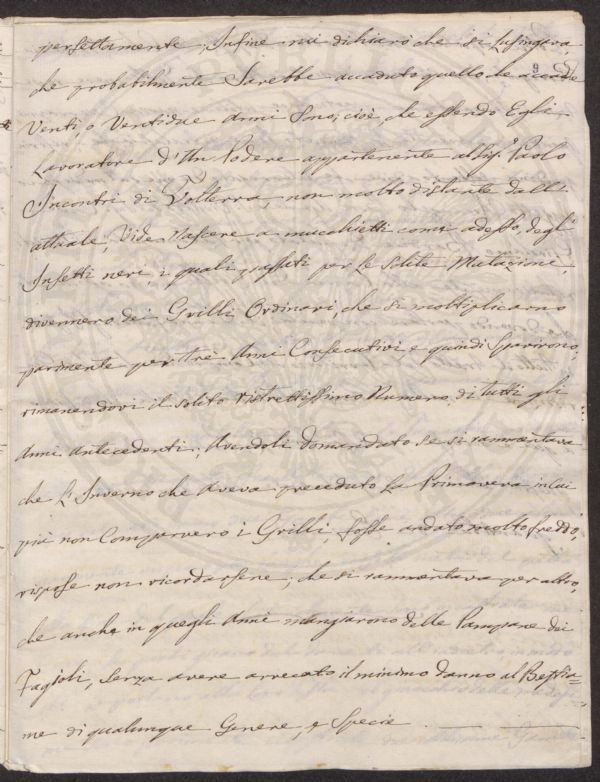 perfettamente; Infine mi dichiarò che si lusingava
che probabilmente Sarebbe accaduto quello che accadde
9
Venti, o Ventidue Anni Sono; cioè, che essendo Egli
Lavoratore d'Un Podere appartenente al Sig.r Paolo
Incontri di Volterra, non molto distante dall'
attuale, Vide Nascere a mucchietti come adesso, degl'
Insetti neri, i quali passati per le Solite Mutazioni,
divennero dei Grilli Ordinari, che si moltiplicarno
parimente per tre Anni Consecutivi e quindi Sparirono,
rimanendovi il solito ristrettissimo Numero di tutti gli
Anni antecedenti; Avendoli domandato se si rammentava
che L'Inverno che aveva preceduto La Primavera in Cui
più non Comparvero i Grilli, fosse andato molto freddo,
rispose non ricordarsene; che si rammentava per altro,
che anche in quegli Anni mangiarono delle Pampane dei
Fagioli, Senza avere arrecato il minimo danno al Bestia=
me di qualunque Genere, e Specie